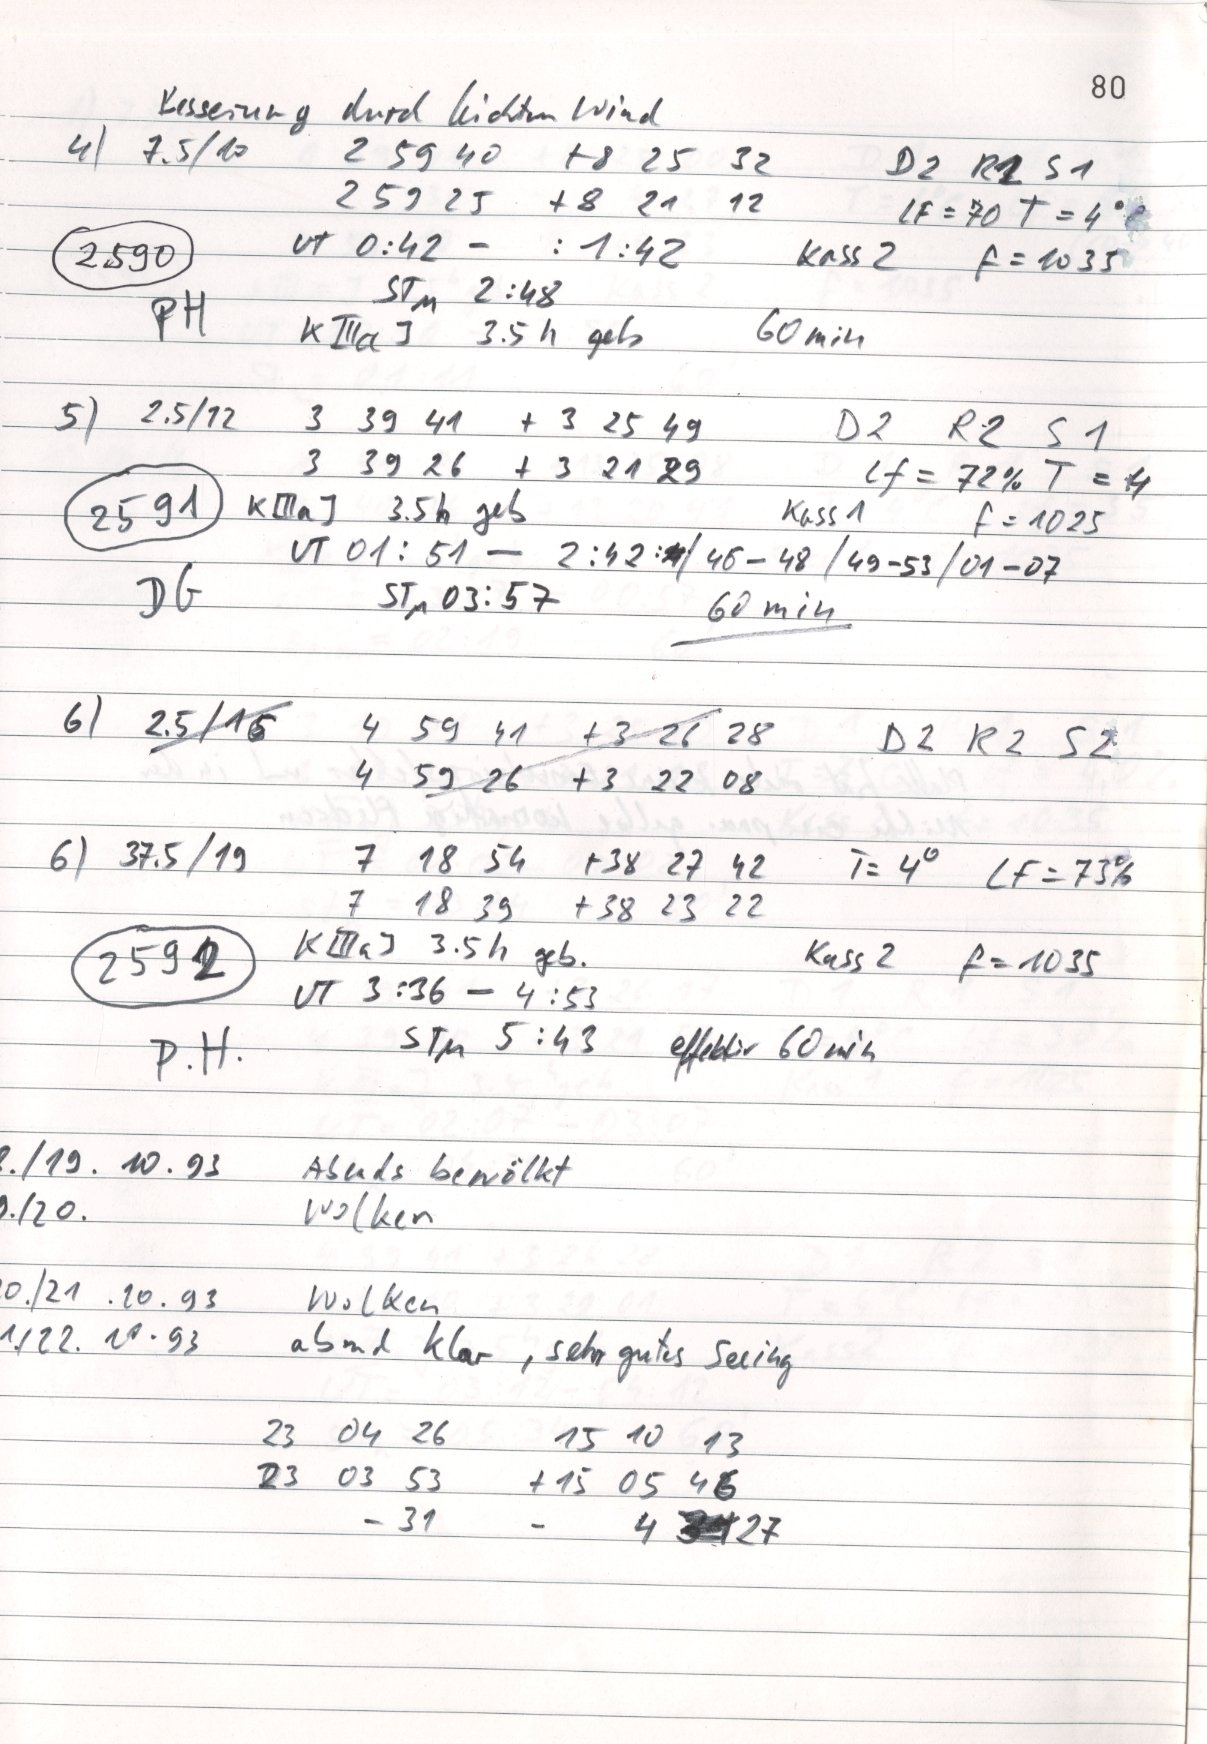 80
Besserung durch leichten Wind
4) 7.5/10 2 59 40 +8 25 32 D2 R2 S1
2 59 25 +8 21 12 LF=70 T=4°
2590 UT 0:42 - :1:42 Kass 2 f=1035
STM 2:48
PH K[IIIa] 3.5h geb 60 min
5) 2.5/12 3 39 41 +3 25 49 D2 R2 S1
3 39 26 +3 21 29 Lf=72% T=4
2591 K[IIIa] 3.5h geb Kass 1 f=1025
UT 01:51 - 2:42 / 46-48 / 49-53 / 01-07
DG STM 03:57 60 min
6) 2.5/16 4 59 41 +3 26 28 D2 R2 S2
4 59 26 +3 22 08
6) 37.5/19 7 18 54 +38 27 42 T=4° LF=73%
7 18 39 +38 23 22
2592 K[IIIa] 3.5h geb. Kass 2 f=1035
UT 3:36 - 4:53
P.H. STM 5:43 effektiv 60 min
8./19. 10.93 Abends bewölkt
9./20. Wolken
20./21 .10.93 Wolken
1./22. 10.93 abend klar, sehr gutes Seeing
23 04 26 15 10 13
23 03 53 +15 05 46
-31 - 4 27